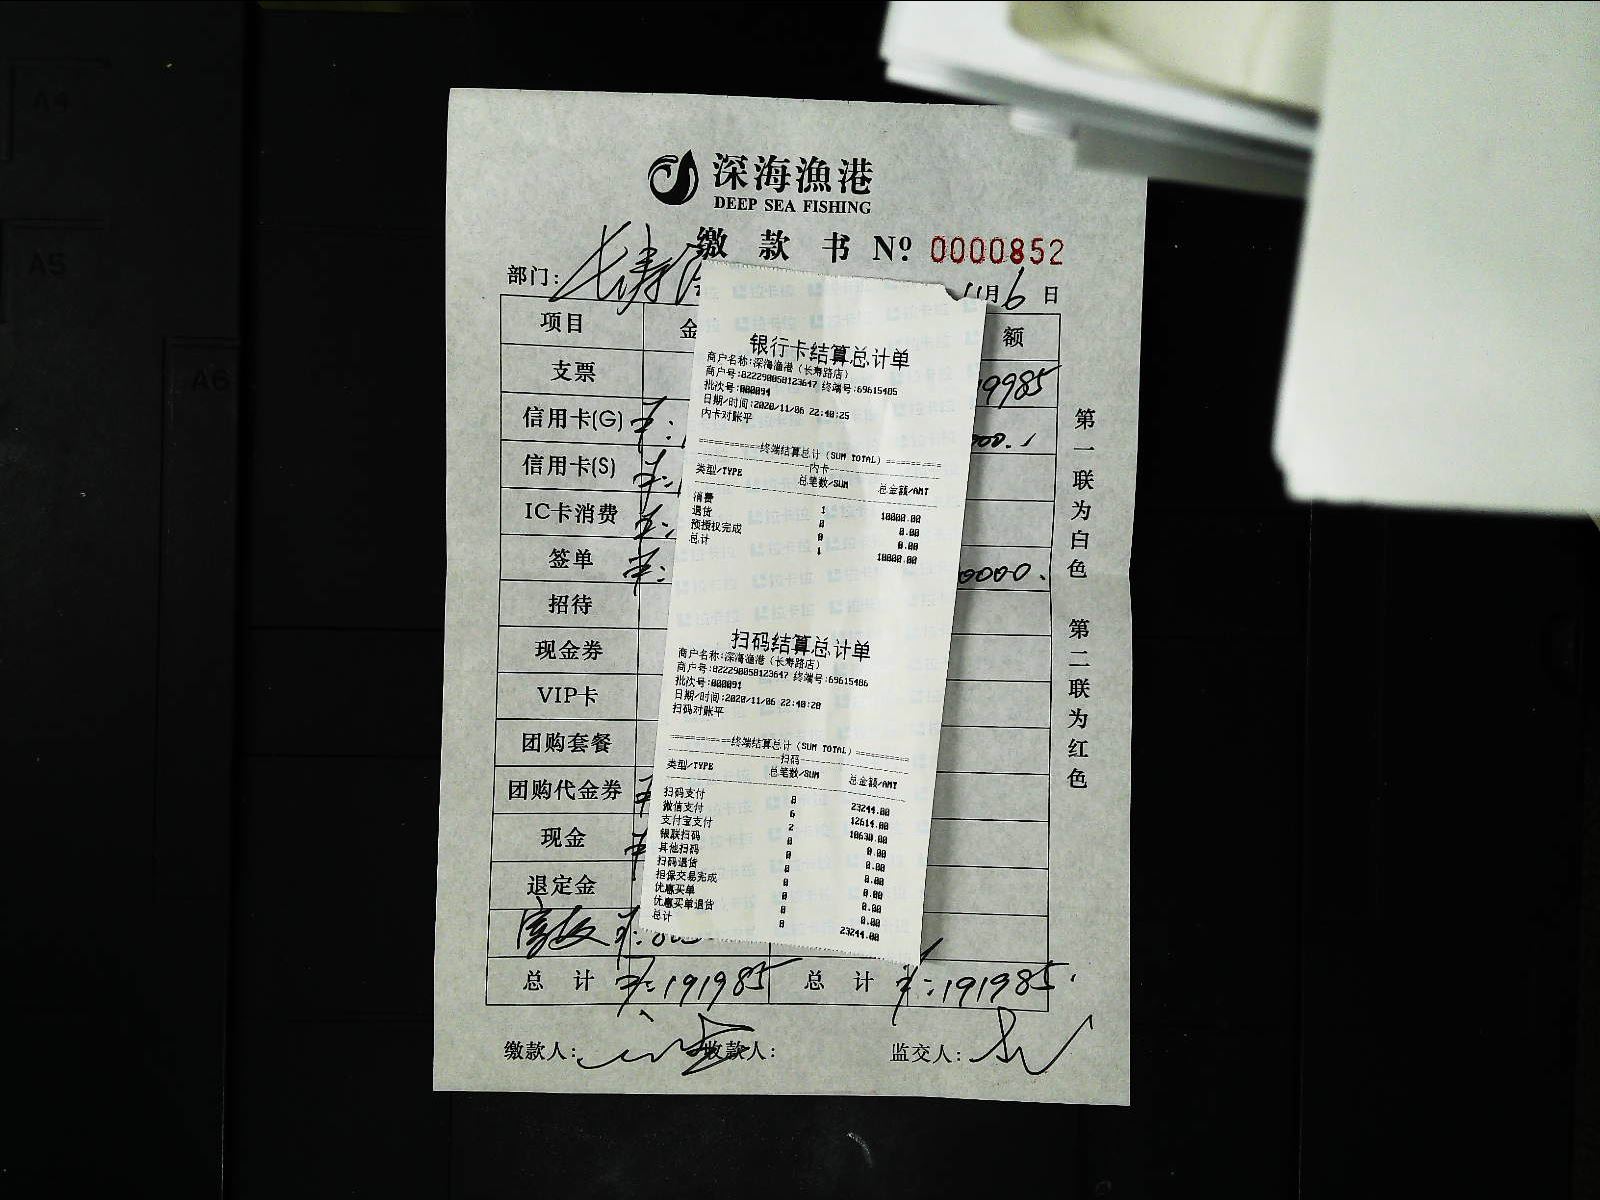 A4
A5
A6
深海漁港
DEEP SEA FISHING
缴款书 Nº 0000852
部门: 长寿
11月6日
项目 金 额
支票 19985
信用卡(G) 000.
信用卡(S)
IC卡消费
签单 0000.
招待
现金券
VIP卡
团购套餐
团购代金券
现金
退定金
总计 ¥:191985 总计 ¥:191985.
缴款人: 收款人: 监交人:
第一联为白色 第二联为红色
银行卡结算总计单
商户名称:深海渔港(长寿路店)
商户号:822290058123647 终端号:69615405
批次号:000094
日期/时间:2020/11/06 22:40:25
内卡对账平
===========终端结算总计(SUM TOTAL)==========
内卡
类型/TYPE 总笔数/SUM 总金额/AMT
消费 1 10000.00
退货 0 0.00
预授权完成 0 0.00
总计 1 10000.00
扫码结算总计单
商户名称:深海渔港(长寿路店)
商户号:822290058123647 终端号:69615406
批次号:000091
日期/时间:2020/11/06 22:40:28
扫码对账平
===========终端结算总计(SUM TOTAL)==========
扫码
类型/TYPE 总笔数/SUM 总金额/AMT
扫码支付 8 23244.00
微信支付 6 12614.00
支付宝支付 2 10630.00
银联扫码 0 0.00
其他扫码 0 0.00
扫码退货 0 0.00
担保交易完成 0 0.00
优惠买单 0 0.00
优惠买单退货 0 0.00
总计 8 23244.00